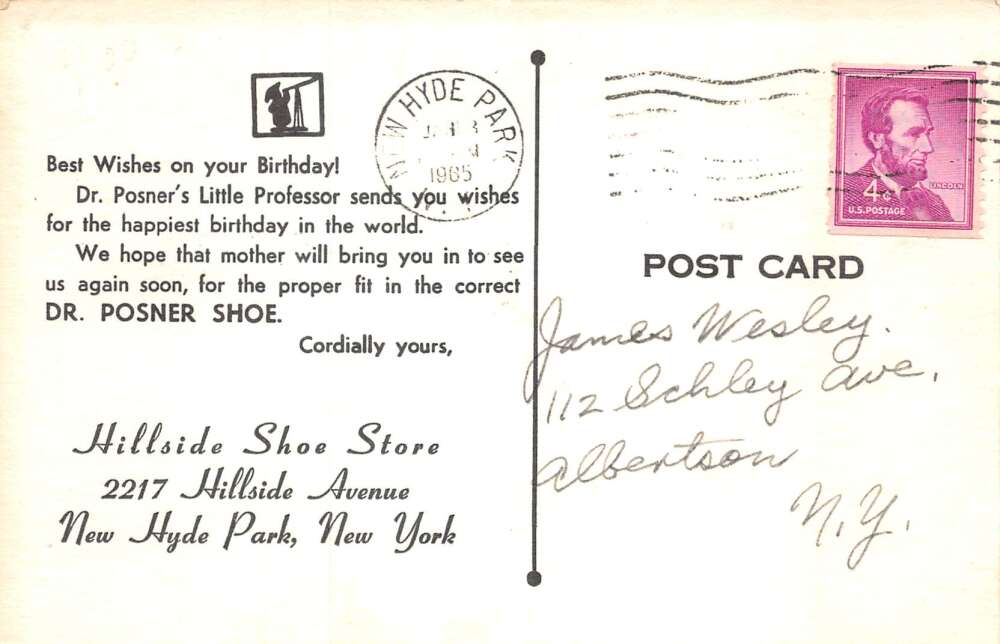 Best Wishes on your Birthday!
Dr. Posner's Little Professor sends you wishes
for the happiest birthday in the world.
We hope that mother will bring you in to see
us again soon, for the proper fit in the correct
DR. POSNER SHOE.
Cordially yours,
Hillside Shoe Store
2217 Hillside Avenue
New Hyde Park, New York
NEW HYDE PARK
1965
4¢
LINCOLN
U.S. POSTAGE
POST CARD
James Wesley.
112 Schley Ave.
Albertson
N.Y.